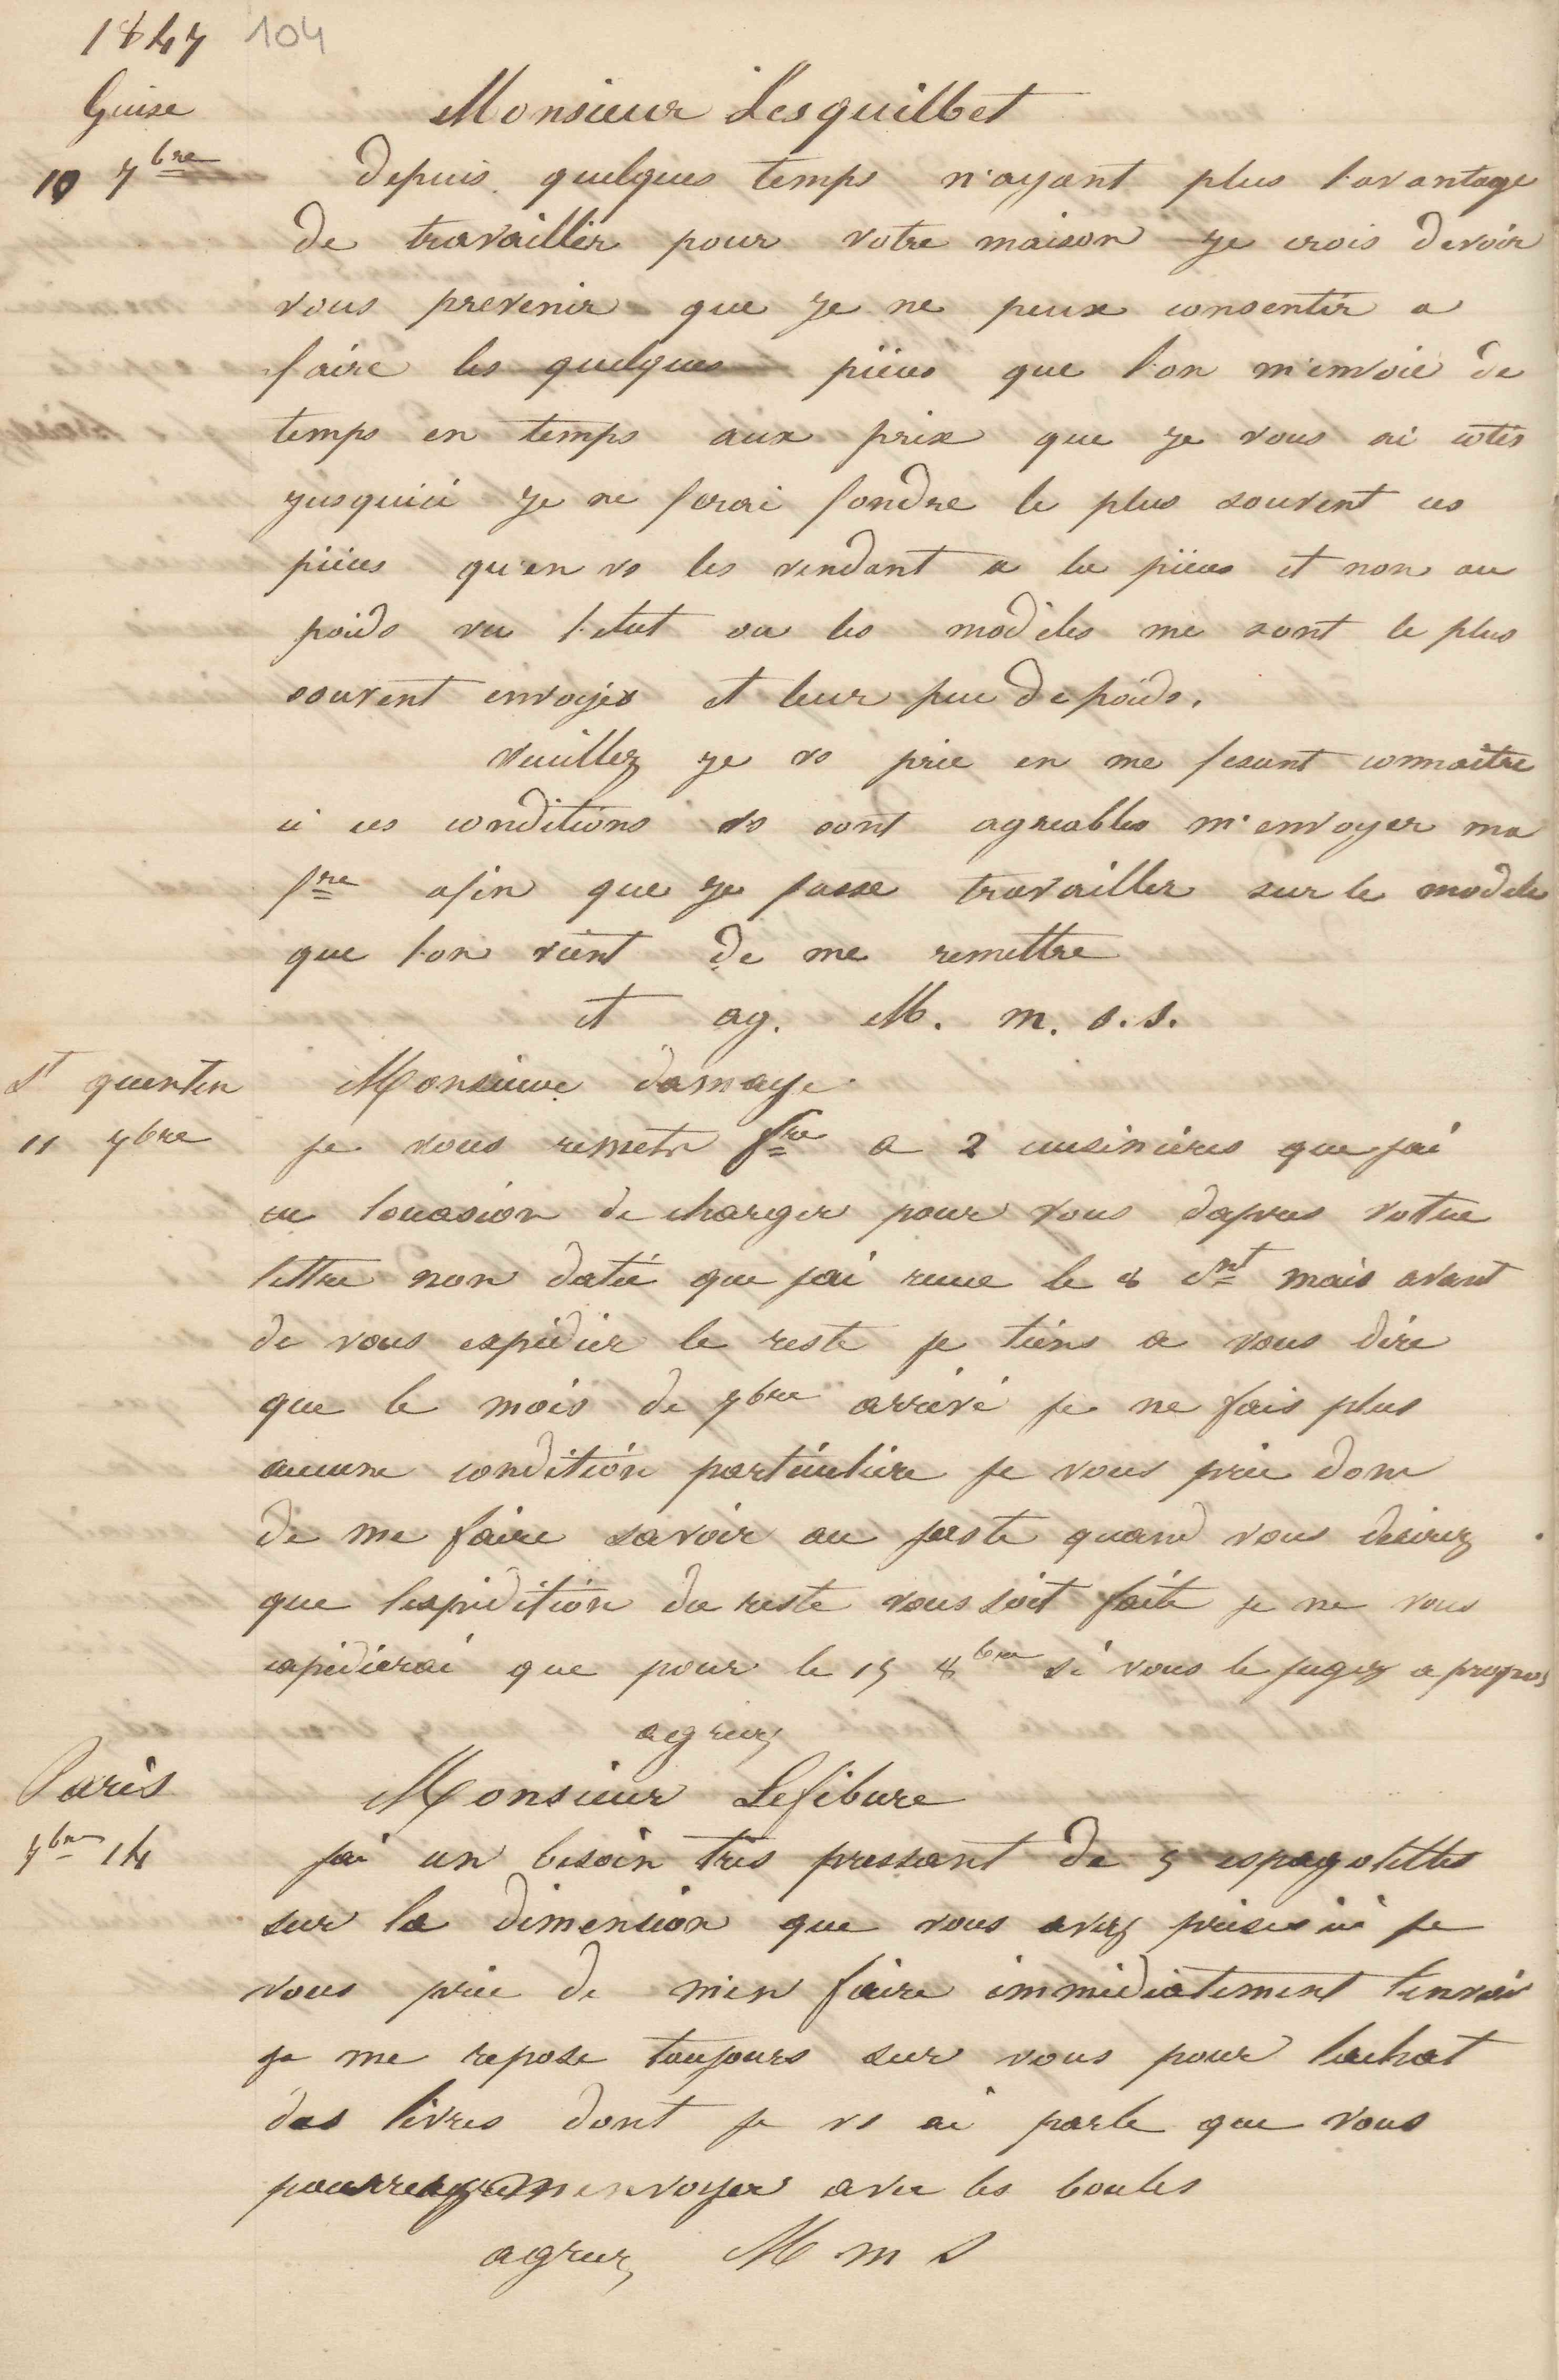 1847 104
Guise
Monsieur Lesquilbet
10 7bre
depuis quelques temps n'ayant plus l'avantage
de travailler pour votre maison je crois devoir
vous prevenir que je ne peux consentir a
faire les quelques pièces que l'on m'envoie de
temps en temps aux prix que je vous ai cotés
jusquici je ne ferai fondre le plus souvent ces
pièces qu'en vs les vendant a la pièces et non au
poids vu l'etat ou les modèles me sont le plus
souvent envoyés et leur peu de poids.
veuillez je vs prie en me fesant connaitre
si ces conditions vs sont agreables m'envoyer ma
fre afin que je fasse travailler sur le modele
que l'on vient de me remettre
et ag. M. m. s. s.
St quentin
Monsieur damaye
11 7bre
je vous remets fre a 2 cuisinières que jai
eu locasion de charger pour vous dapres votre
lettre non datée que jai recue le 8 cnt mais avant
de vous expédier le reste je tiens a vous dire
que le mois de 7bre arrivé je ne fais plus
aucune condition particulière je vous prie donc
de me faire savoir au juste quand vous desirez
que lexpédition du reste vous soit faite je ne vous
expédierai que pour le 15 8bre si vous le jugez a propos
agreez
Paris
Monsieur Lefebure
7bre 14
jai un besoin très pressant de 5 espagolettes
sur la dimension que vous avez prises ici je
vous prie de m'en faire immédiatement l'envoi
je me repose toujours sur vous pour lachat
des livres dont je vs ai parle que vous
pourrez m'envoyer avec les boules
agreez M m s